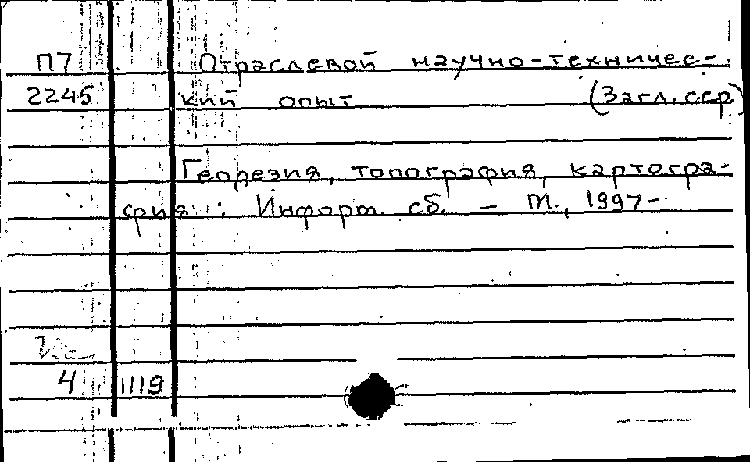 П7 Отраслевой научно-техничес-
2245 кий опыт (Загл. сер)
Геодезия, топография, картогра-
фия: Информ. сб. - М., 1997-
4 1119